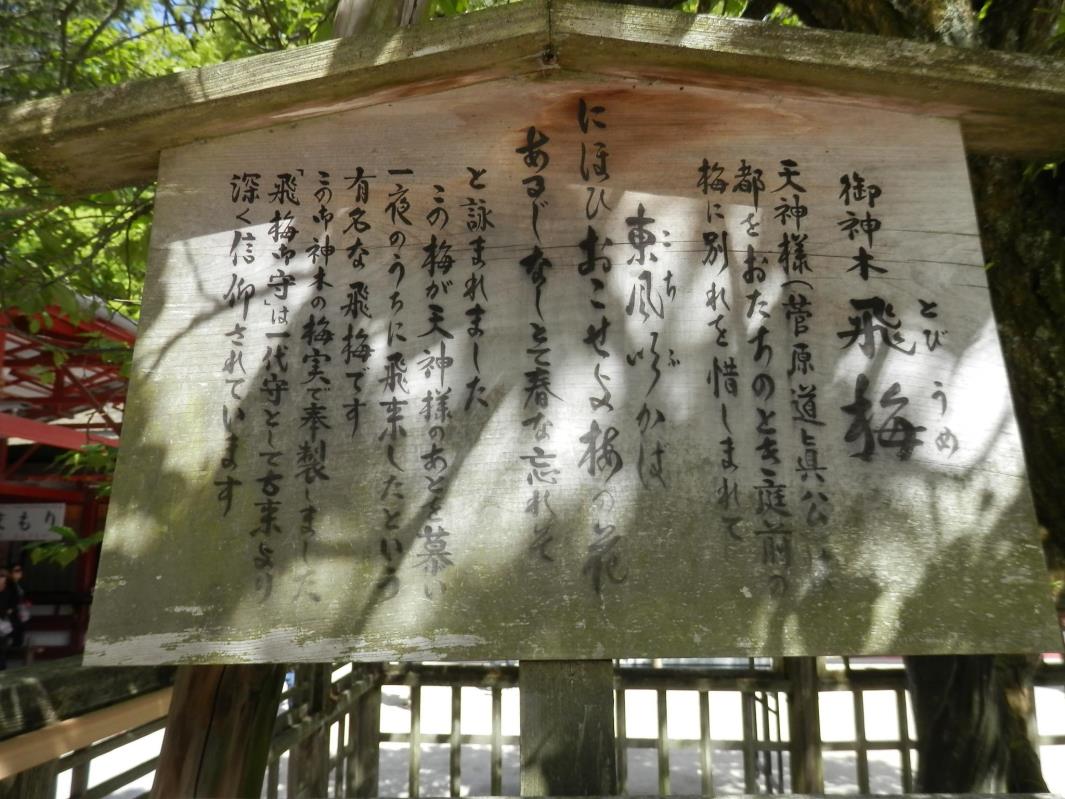 御神木 飛梅
とびうめ
天神様(菅原道眞公)は
都をおたちのとき庭前の
梅に別れを惜しまれて
東風吹かは
こちふ
にほひおこせよ梅の花
あるじなしとて春な忘れそ
と詠まれました
この梅が天神様のあとを慕い
一夜のうちに飛来したという
有名な飛梅です
この御神木の梅実で奉製しました
「飛梅御守」は一代守として古来より
深く信仰されています
まもり